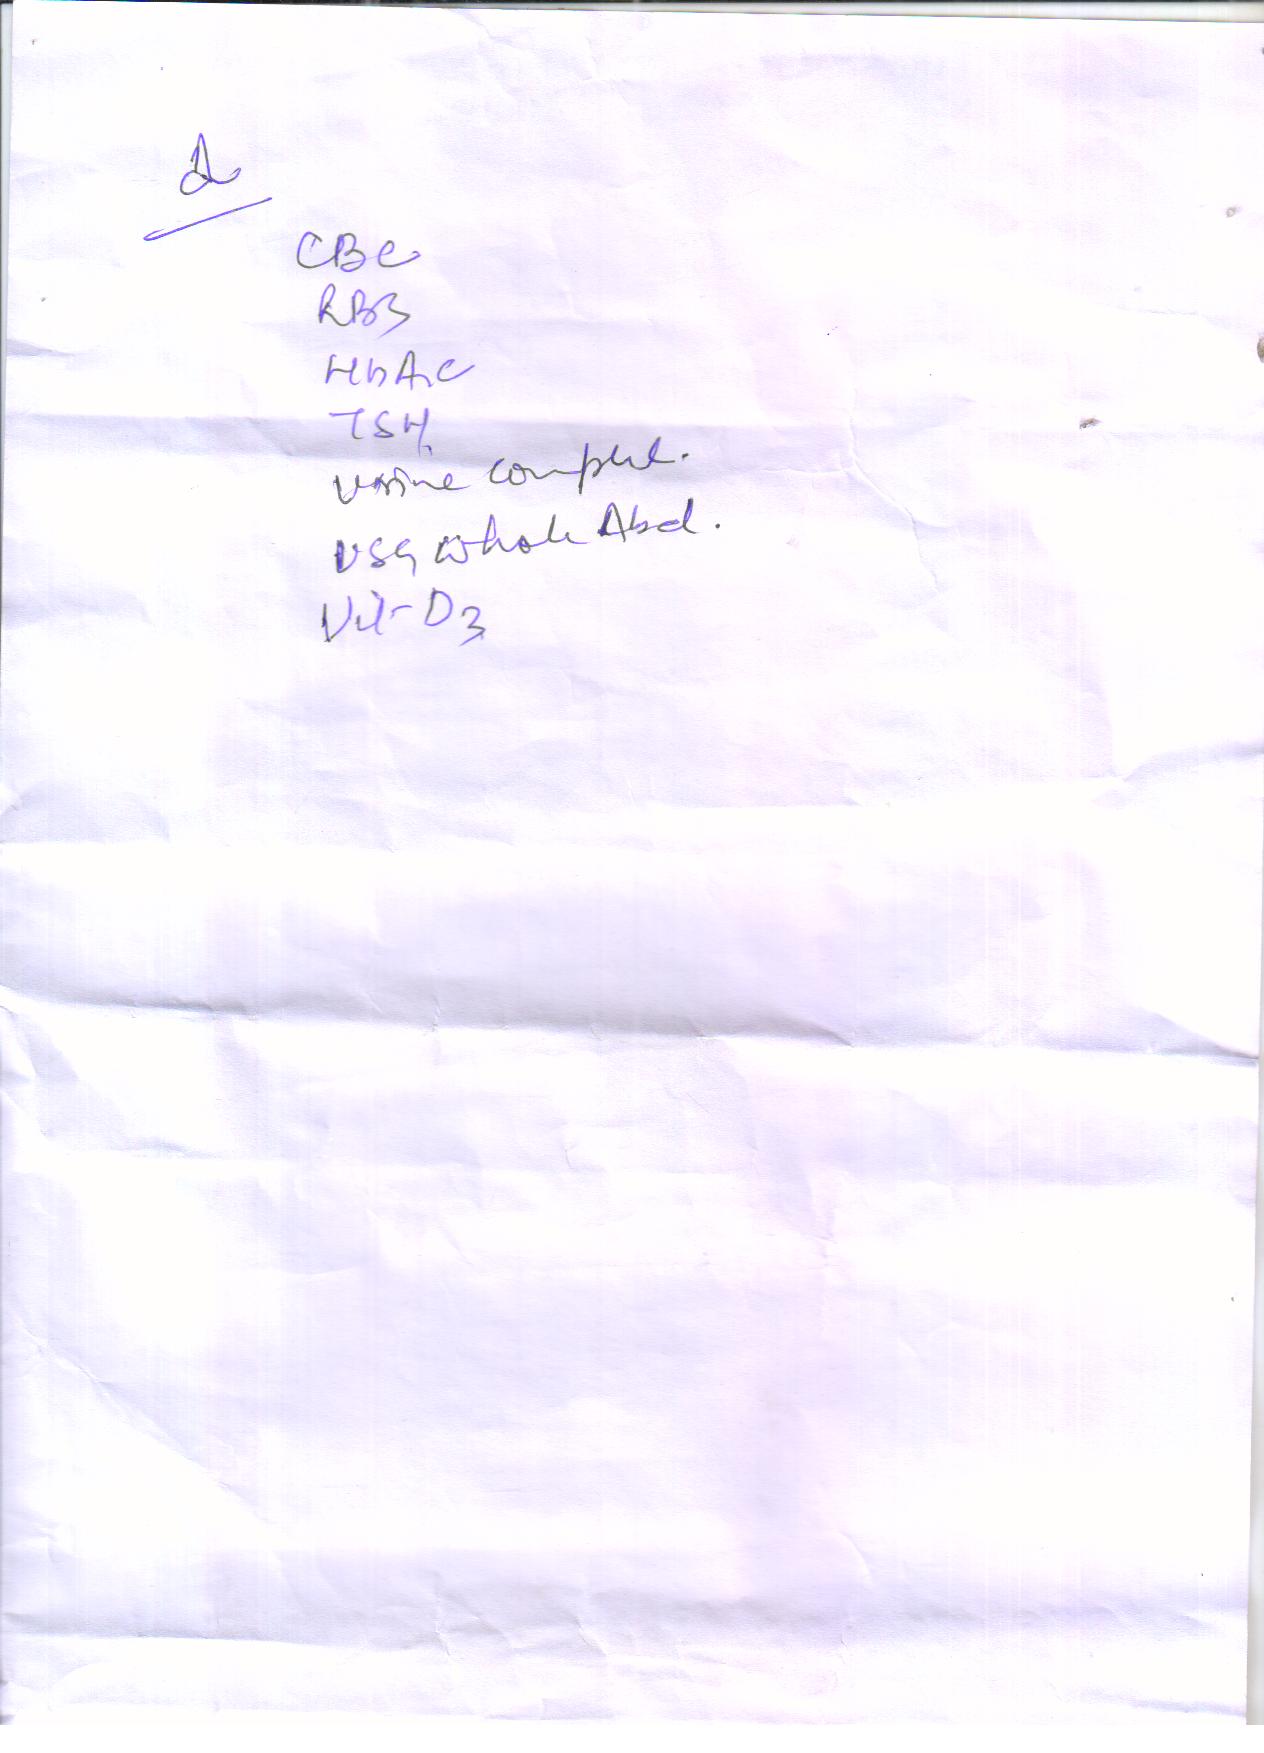 CBC
RBS
HbA1C
TSH
Urine Complet.
USG Whole Abd.
Vit-D3